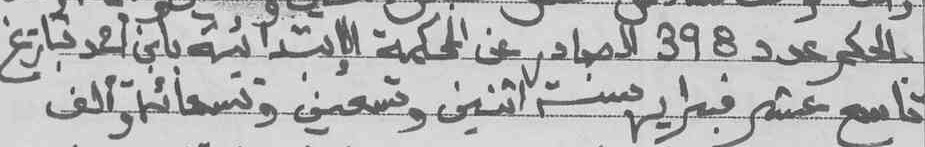 بالحكم عدد 398 الصادر عن المحكمة الابتدائية بابن أحمد بتاريخ
تاسع عشر فبراير سنة اثنين وتسعين وتسعمائة وألف